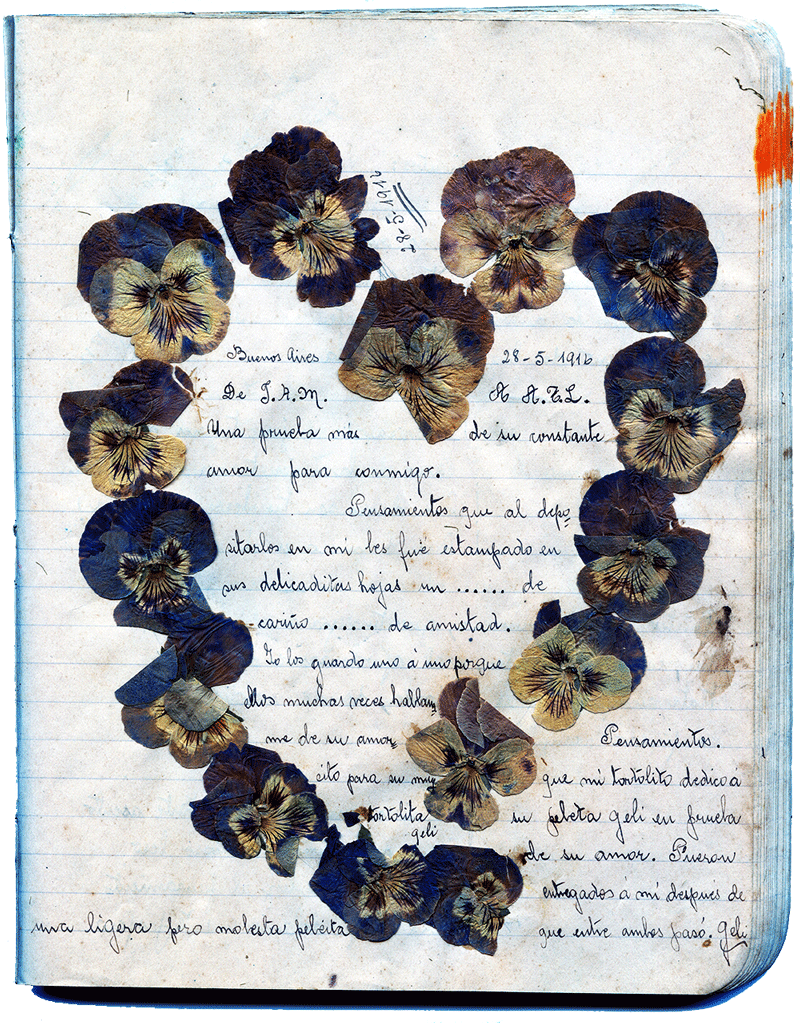 28-5-1916
Buenos Aires 28-5-1916
De J.A.M. A A.T.L.
Una prueba más de su constante
amor para conmigo.
Pensamientos que al depo-
sitarlos en mi les fué estampado en
sus delicaditas hojas un ...... de
cariño ...... de amistad.
Yo los guardo uno á uno porque
ellos muchas veces hablan
me de su amor-
cito para su
tortolita
geli
Pensamientos.
que mi tortolito dedico á
su pebeta geli en prueba
de su amor. Fueron
entregados á mi después de
una ligera pero molesta peléita que entre ambos pasó. Geli